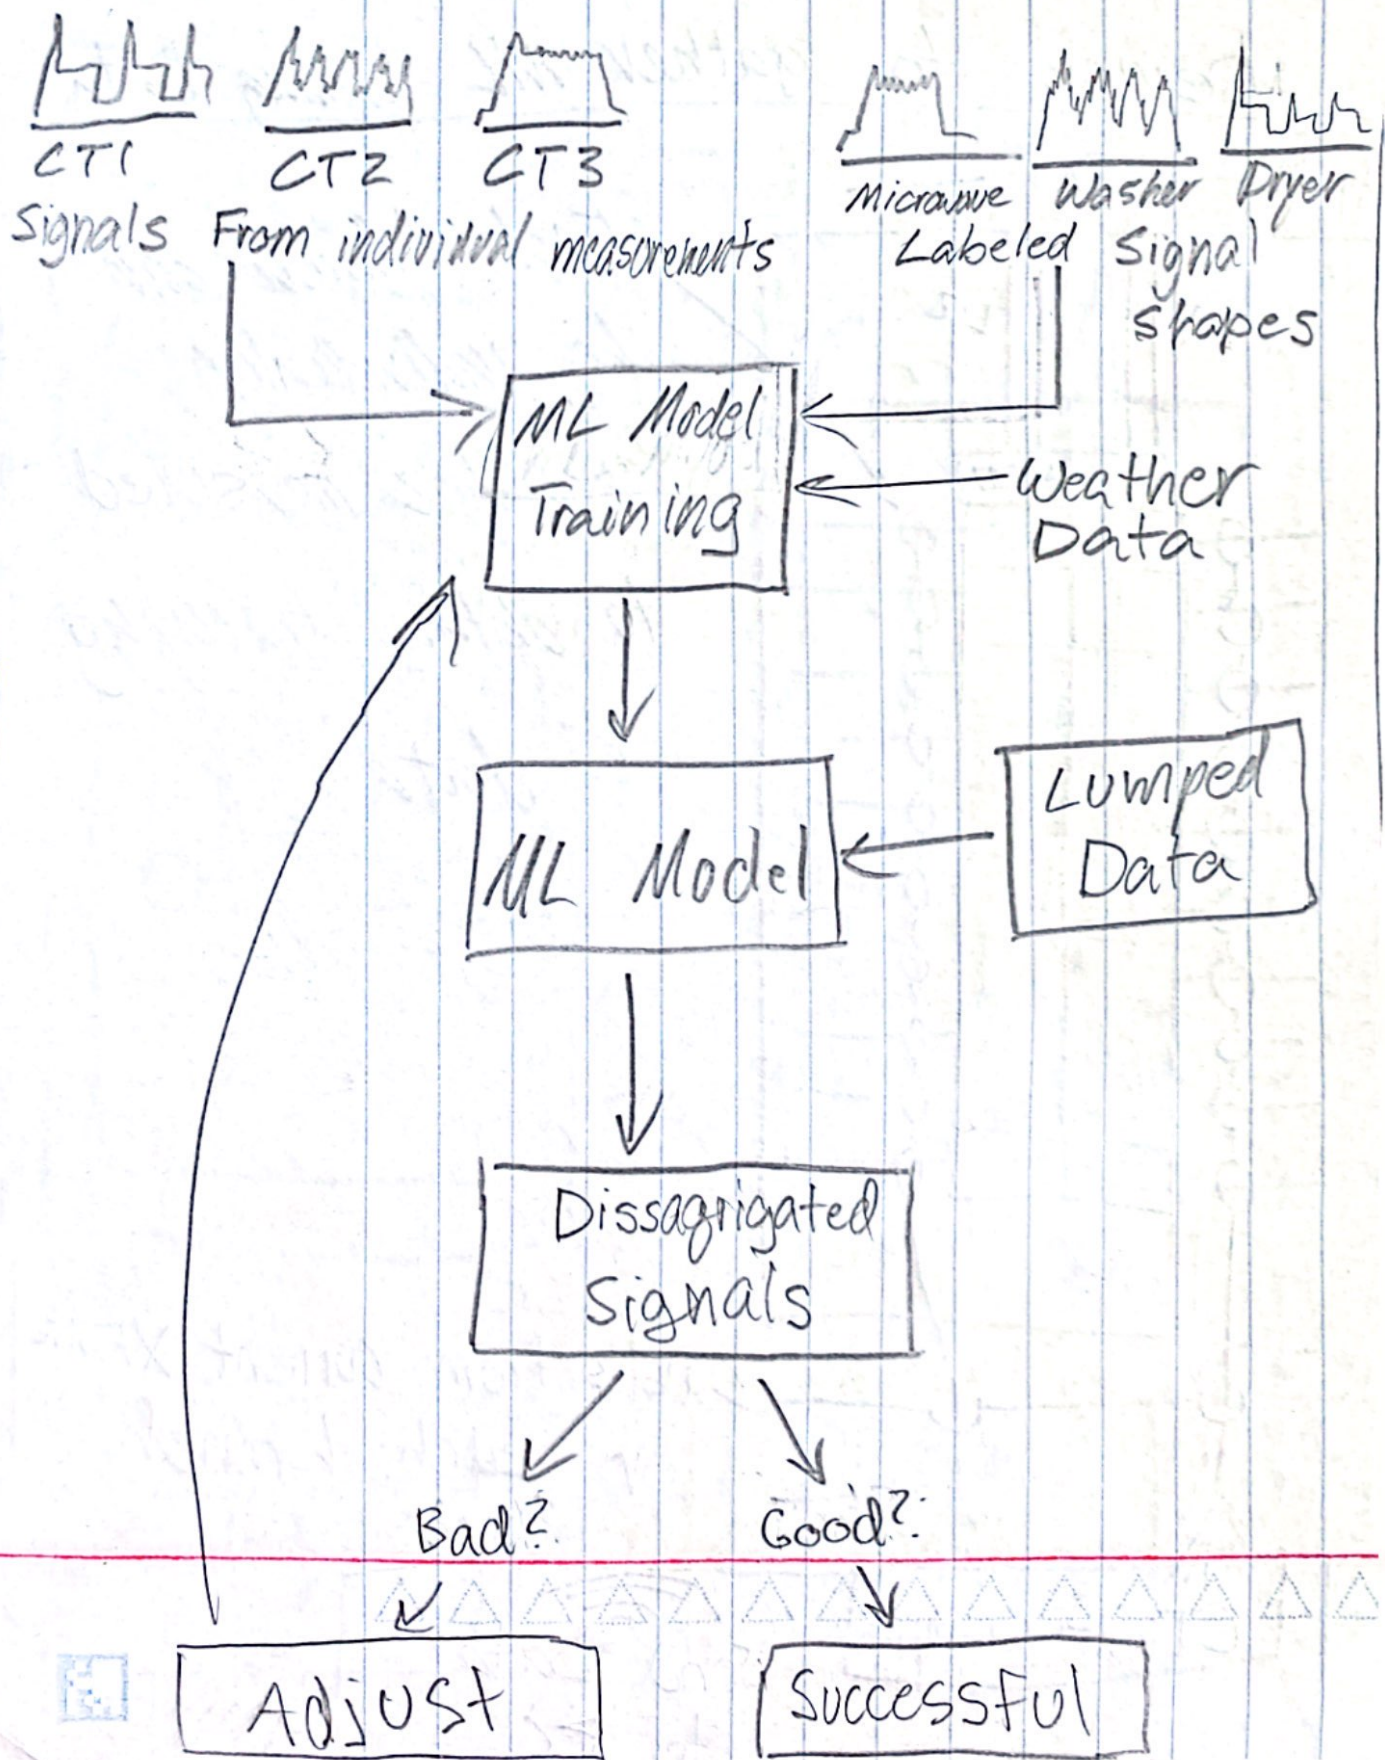 CT1 CT2 CT3
Signals From individual measurements
Microwave Washer Dryer
Labeled Signal
shapes
ML Model
Training
Weather
Data
ML Model
Lumped
Data
Dissagrigated
Signals
Bad? Good?
Adjust Successful